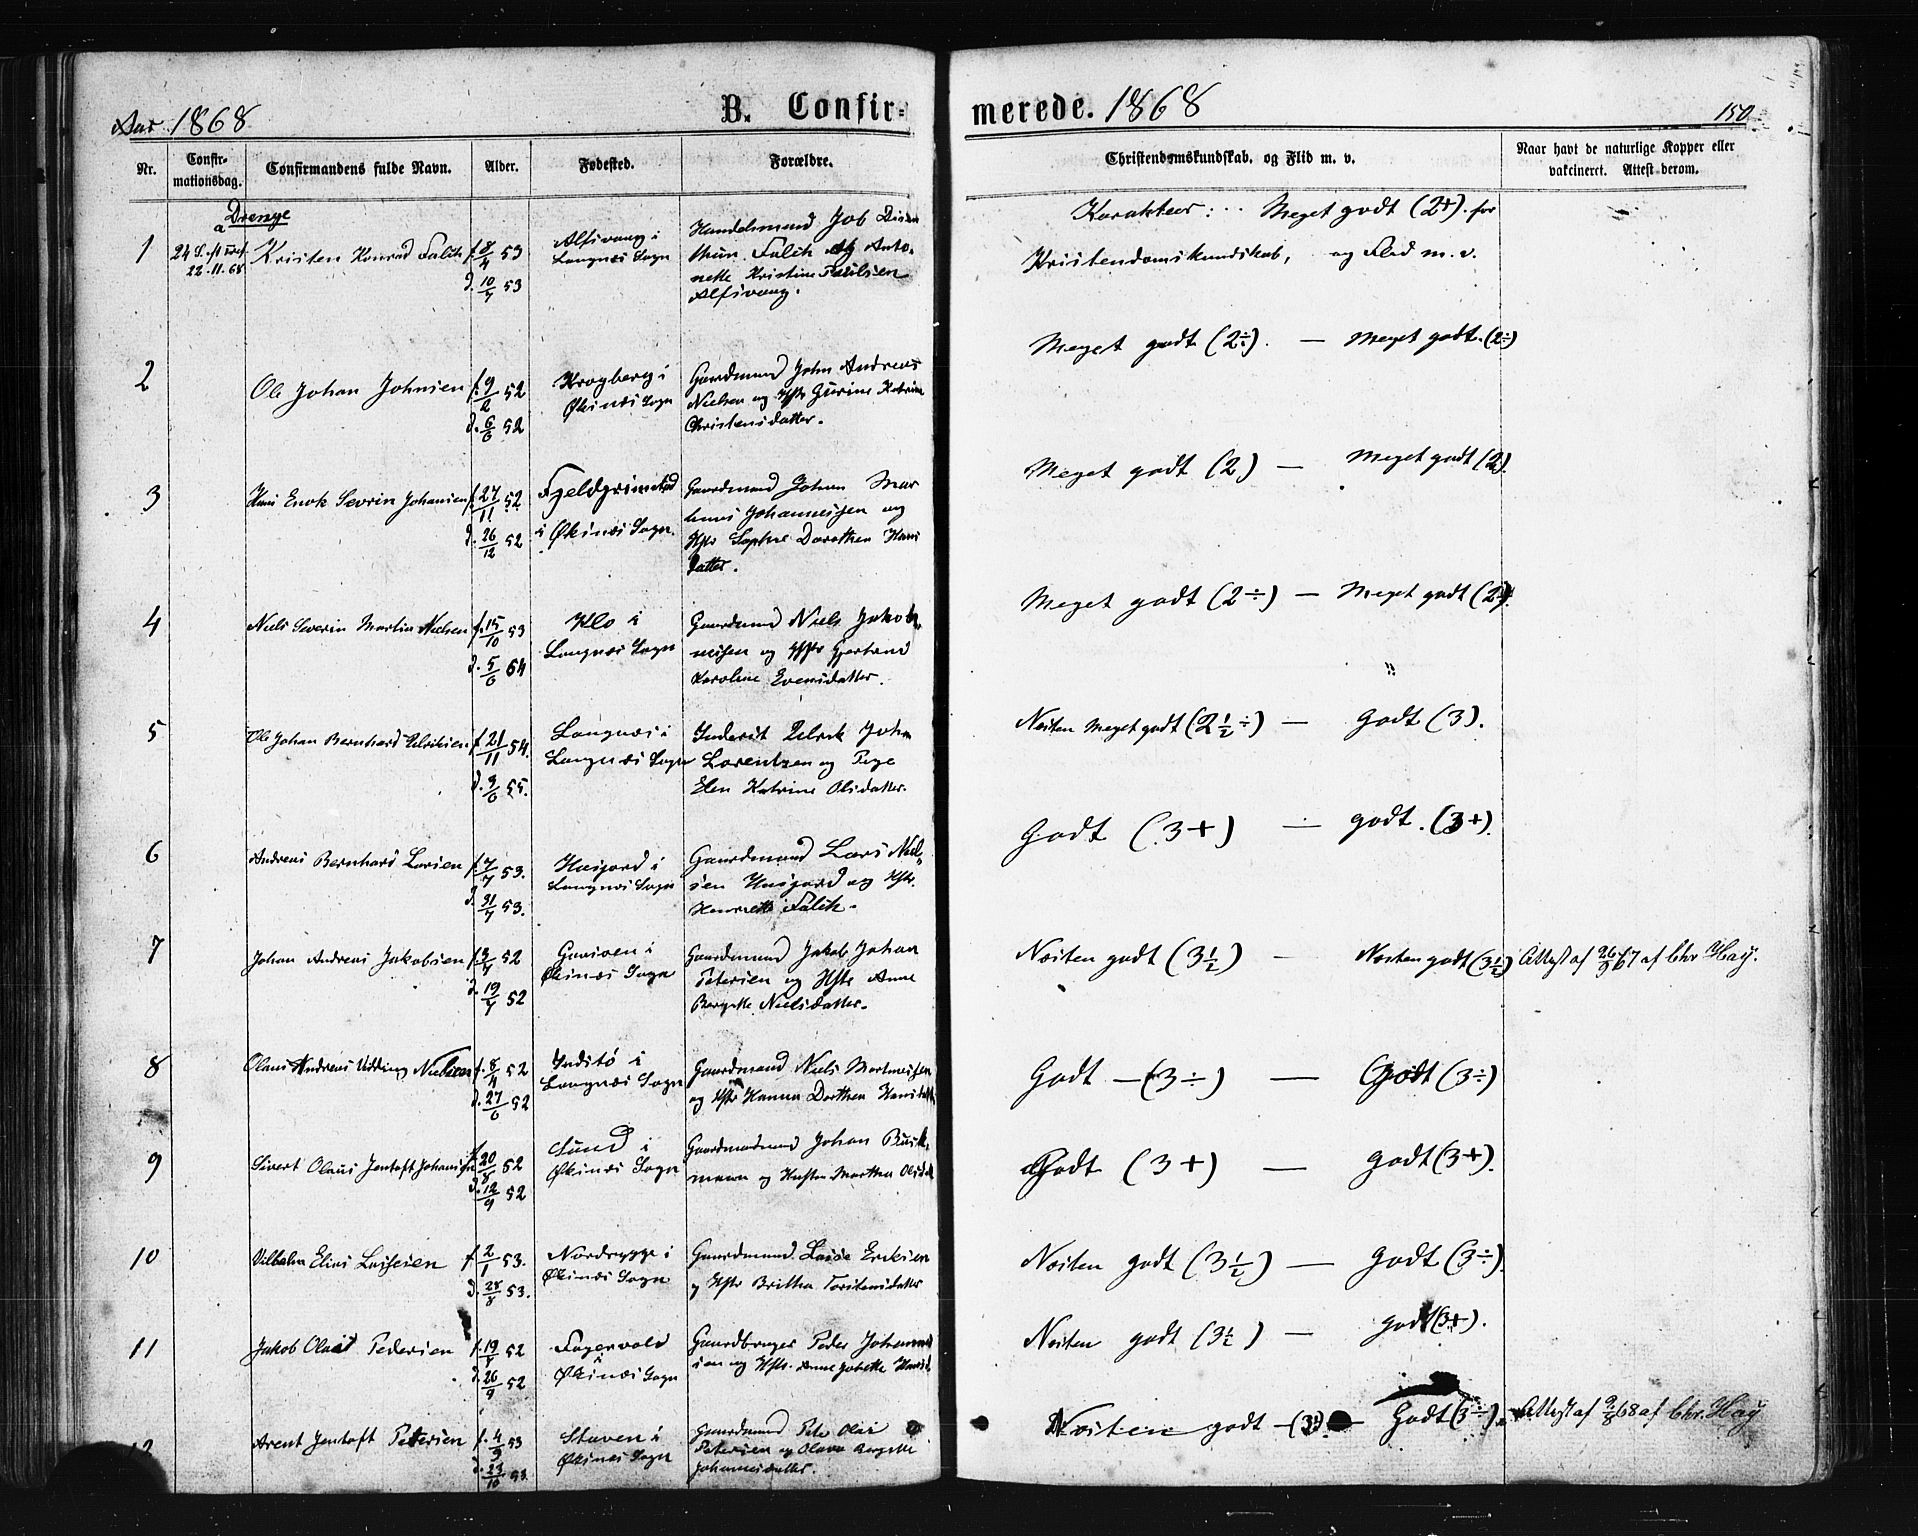 Aar 1868.
B. Confir-
merede. 1868
150
Nr.
Confir-
mationsdag.
Confirmandens fulde Navn.
Alder.
Fødested.
Forældre.
Christendomskundskab, og Flid m. v.
Naar havt de naturlige Kopper eller
vakcineret. Attest derom.
Drenge
Karakteer: Meget godt (2+) for
Kristendomskundskab, og Flid m. v.
1
22-11-68
Kristen Konrad Falch
f. 8/4 53
d. 10/7 53
Alfsvaag i
Langnæs Sogn
Handelsmand Job
Falch og Anto-
nette Kristine Paulsen
Alfsvaag.
2
Ole Johan Johnsen
f. 9/2 52
d. 6/6 52
Krogberg i
Øksnæs Sogn
Gaardmand John Andreas
Nielsen og Hstr Gurine Katrine
Christensdatter.
Meget godt (2÷). — Meget godt. (2÷)
3
Hans Enok Sevrin Johansen
f. 27/11 52
d. 26/12 52
Fjeldgrimstad
i Øksnæs Sogn.
Gaardmand Johan Mar
Johannessen og
Hstr Sophie Dorothea Hans
datter.
Meget godt (2) — Meget godt (2).
4
Niels Severin Martin Nielsen
f. 15/10 53
d. 5/6 54
Klo i
Langnæs Sogn
Gaardmand Niels Jakob
og Hstr Gjertrud
Karoline Evensdatter.
Meget godt (2÷) — Meget godt (2÷).
5
Ole Johan Bernhard Ulriksen
f. 21/11 54.
d. 9/6 55.
Langnæs i
Langnæs Sogn
Inderst Ulrik John
Lorentzen og Pige
Elen Katrine Olsdatter.
Næsten Meget godt (2½÷) — Godt (3).
6
Andreas Bernhard Larsen
f. 7/7 53.
d. 31/7 53.
Langnæs Sogn
Gaardmand Lars Niel-
sen og Hstr.
Henriette Falch.
Godt (3+) — godt. (3+).
7
Johan Andreas Jakobsen
d. 19/7 52
Gaasen i
Øksnæs Sogn
Gaardmand Jakob Johan
Petersen og Hstr Anne
Bergette Nielsdatter.
Næsten godt (3½) — Næsten godt (3½)
Attest af 26/9 67 af Chr. Hay.
8
Olaus Andreas Udding Nielsen
f. 8/4 52
d. 27/6 52
Indstø i
Langnæs Sogn
Gaardmand Niels Mortensen
og Hstr Hanna Dorthea Hansdatter
Godt — (3÷) — Godt (3÷)
9
Sivert Olaus Jentoft Johansen
f. 20/8 52
d. 12/9 52
Sund i
Øksnæs Sogn
Gaardmand Johan Buck-
mann og Hustru Martha
Godt (3+) — godt (3+).
10
Vilhelm Elias Lassesen
f. 2/1 53.
d. 28/8 53.
Nordrygge i
Øksnæs Sogn
Gaardmand Lasse Eriksen
og Hstr Britha Torstensdatter
Næsten godt (3½) — godt (3÷).
11
Jakob Olaus Pedersen
f. 19/8 52
d. 26/9 52
Fagervold
i
Øksnæs Sogn
Gaardbruger Peder Johannes
sen og Hstr. Anne
Næsten godt (3½) — godt (3+).
12
Arent Jentoft Petersen
f. 4/9 53
d. 23/10 53
Staven i
Øksnæs Sogn
Gaardmand Peter Olai
Petersen og Olava Bergette
Johannesdatter.
Næsten godt — Godt (3÷).
Attest af 9/8 68 af Chr. Hay